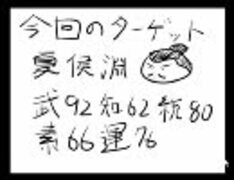 今回のターゲット
夏侯淵
武92知62統80
素66運76